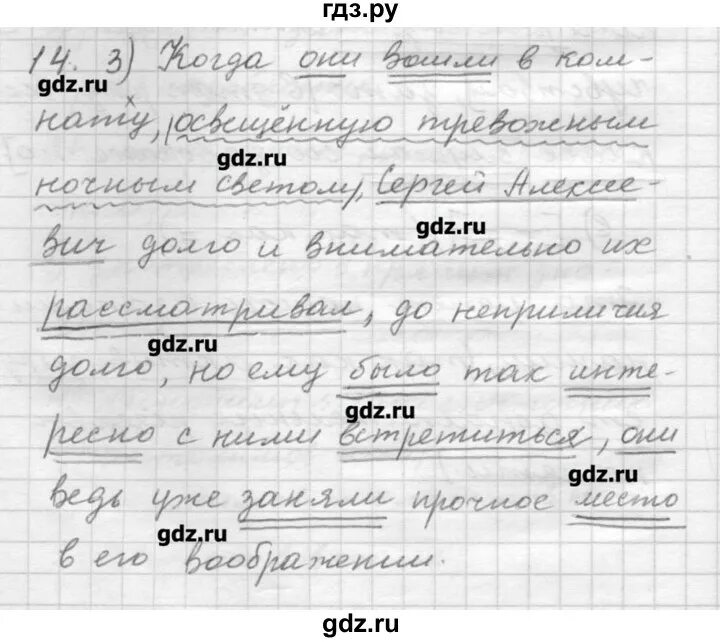 гдз.ру
14. 3) Когда они вошли в ком-
gdz.ru
нату, освещённую тревожным
gdz.ru
ночным светом, Сергей Алексее-
gdz.ru
вич долго и внимательно их
рассматривал, до неприличия
gdz.ru
долго, но ему было так инте-
gdz.ru
ресно с ними встретиться, они
gdz.ru
ведь уже заняли прочное место
gdz.ru
в его воображении.
gdz.ru